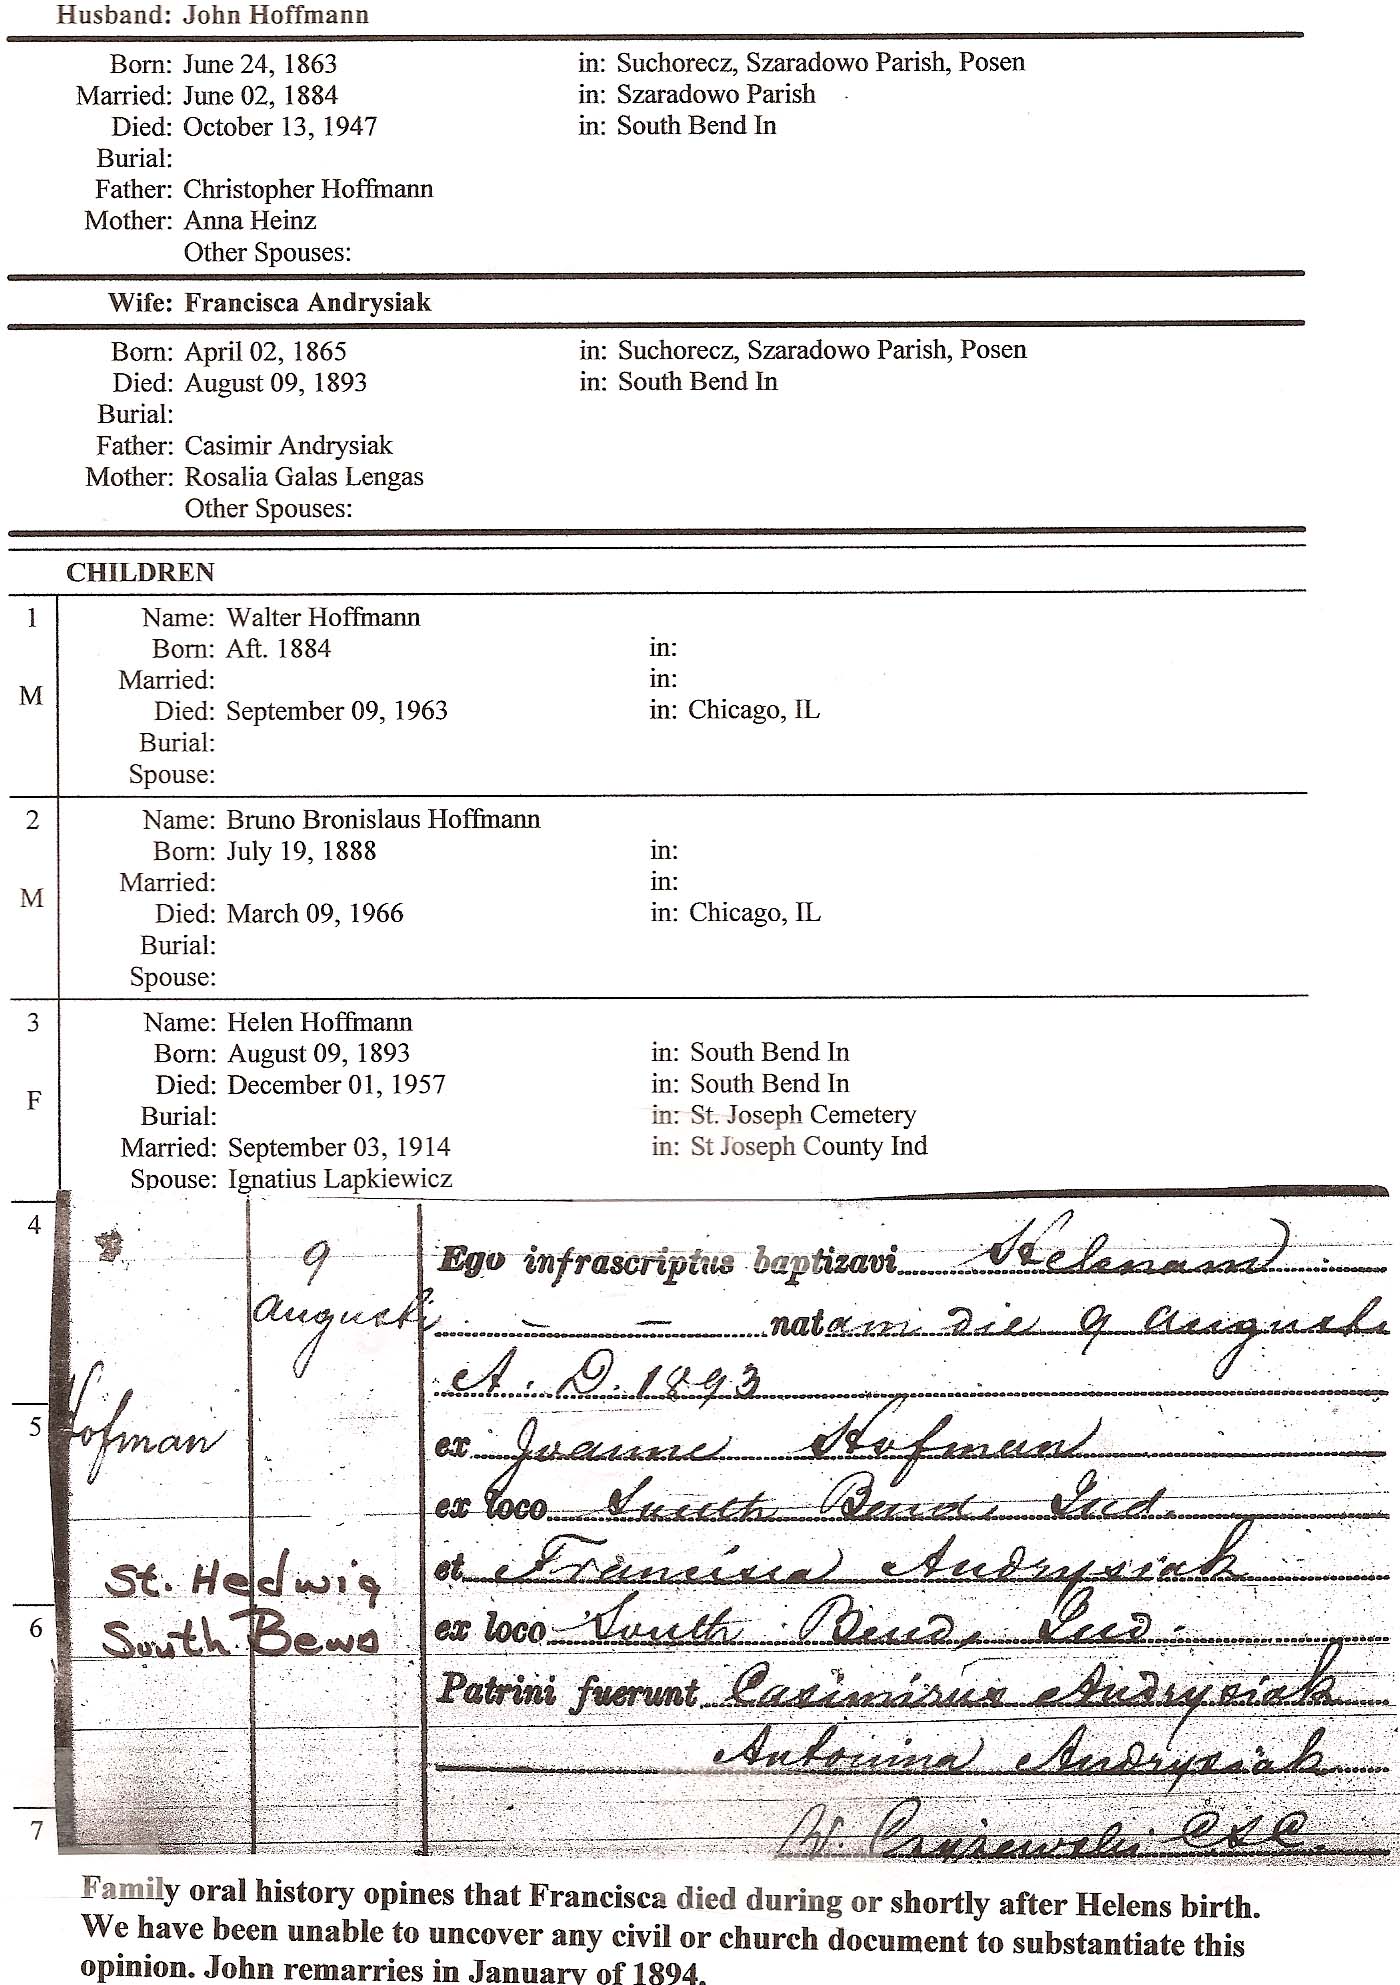 Husband: John Hoffmann
Born: June 24, 1863 in: Suchorecz, Szaradowo Parish, Posen
Married: June 02, 1884 in: Szaradowo Parish
Died: October 13, 1947 in: South Bend In
Burial:
Father: Christopher Hoffmann
Mother: Anna Heinz
Other Spouses:
Wife: Francisca Andrysiak
Born: April 02, 1865 in: Suchorecz, Szaradowo Parish, Posen
Died: August 09, 1893 in: South Bend In
Burial:
Father: Casimir Andrysiak
Mother: Rosalia Galas Lengas
Other Spouses:
CHILDREN
1 Name: Walter Hoffmann
Born: Aft. 1884 in:
M Married: in:
Died: September 09, 1963 in: Chicago, IL
Burial:
Spouse:
2 Name: Bruno Bronislaus Hoffmann
Born: July 19, 1888 in:
M Married: in:
Died: March 09, 1966 in: Chicago, IL
Burial:
Spouse:
3 Name: Helen Hoffmann
Born: August 09, 1893 in: South Bend In
Died: December 01, 1957 in: South Bend In
F Burial: in: St. Joseph Cemetery
Married: September 03, 1914 in: St Joseph County Ind
Spouse: Ignatius Lapkiewicz
4 9 Ego infrascriptus baptizavi Helenam
Augusti natam die 9 Augusti
A. D. 1893
5 Hofman ex Joanne Hofman
ex loco South Bend, Ind.
St. Hedwig et Francisca Andrysiak
6 South Bend ex loco South Bend, Ind.
Patrini fuerunt Casimirus Andrysiak
Antonina Andrysiak
7 C.S.C.
Family oral history opines that Francisca died during or shortly after Helens birth.
We have been unable to uncover any civil or church document to substantiate this
opinion. John remarries in January of 1894.